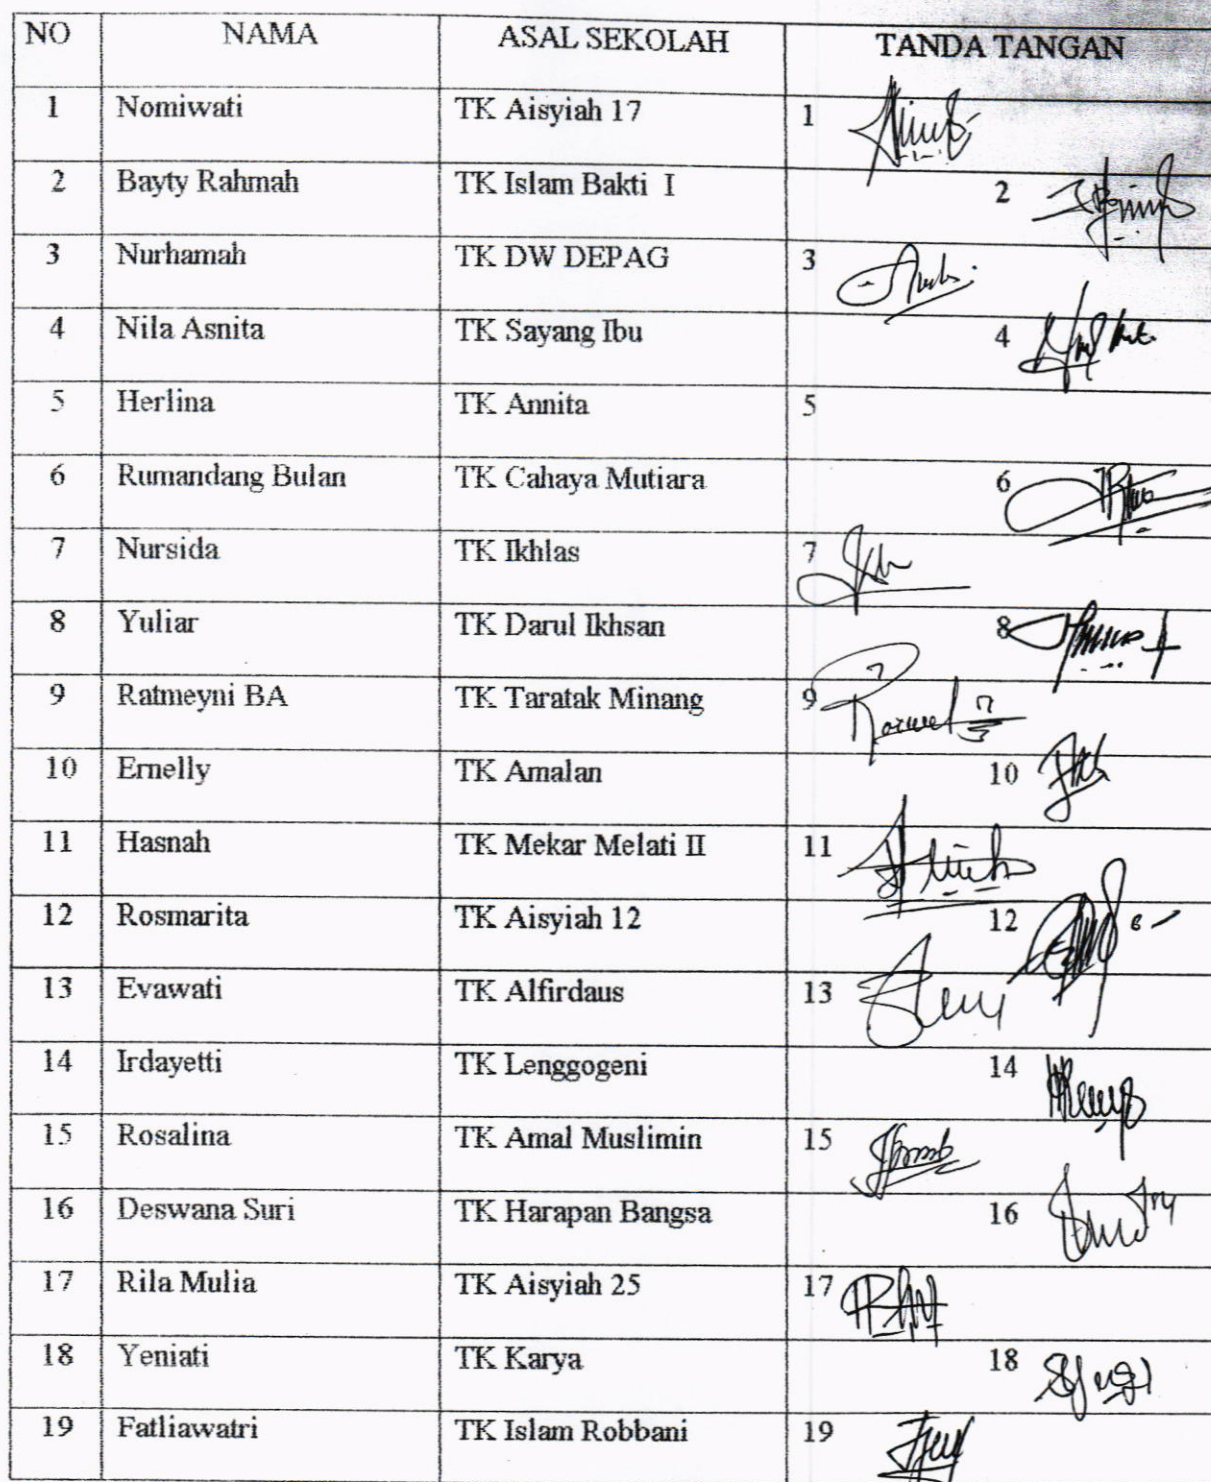 NO NAMA ASAL SEKOLAH TANDA TANGAN
1 Nomiwati TK Aisyiah 17 1
2 Bayty Rahmah TK Islam Bakti I 2
3 Nurhamah TK DW DEPAG 3
4 Nila Asnita TK Sayang Ibu 4
5 Herlina TK Annita 5
6 Rumandang Bulan TK Cahaya Mutiara 6
7 Nursida TK Ikhlas 7
8 Yuliar TK Darul Ikhsan 8
9 Ratmeyni BA TK Taratak Minang 9
10 Ernelly TK Amalan 10
11 Hasnah TK Mekar Melati II 11
12 Rosmarita TK Aisyiah 12 12
13 Evawati TK Alfirdaus 13
14 Irdayetti TK Lenggogeni 14
15 Rosalina TK Amal Muslimin 15
16 Deswana Suri TK Harapan Bangsa 16
17 Rila Mulia TK Aisyiah 25 17
18 Yeniati TK Karya 18
19 Fatliawatri TK Islam Robbani 19